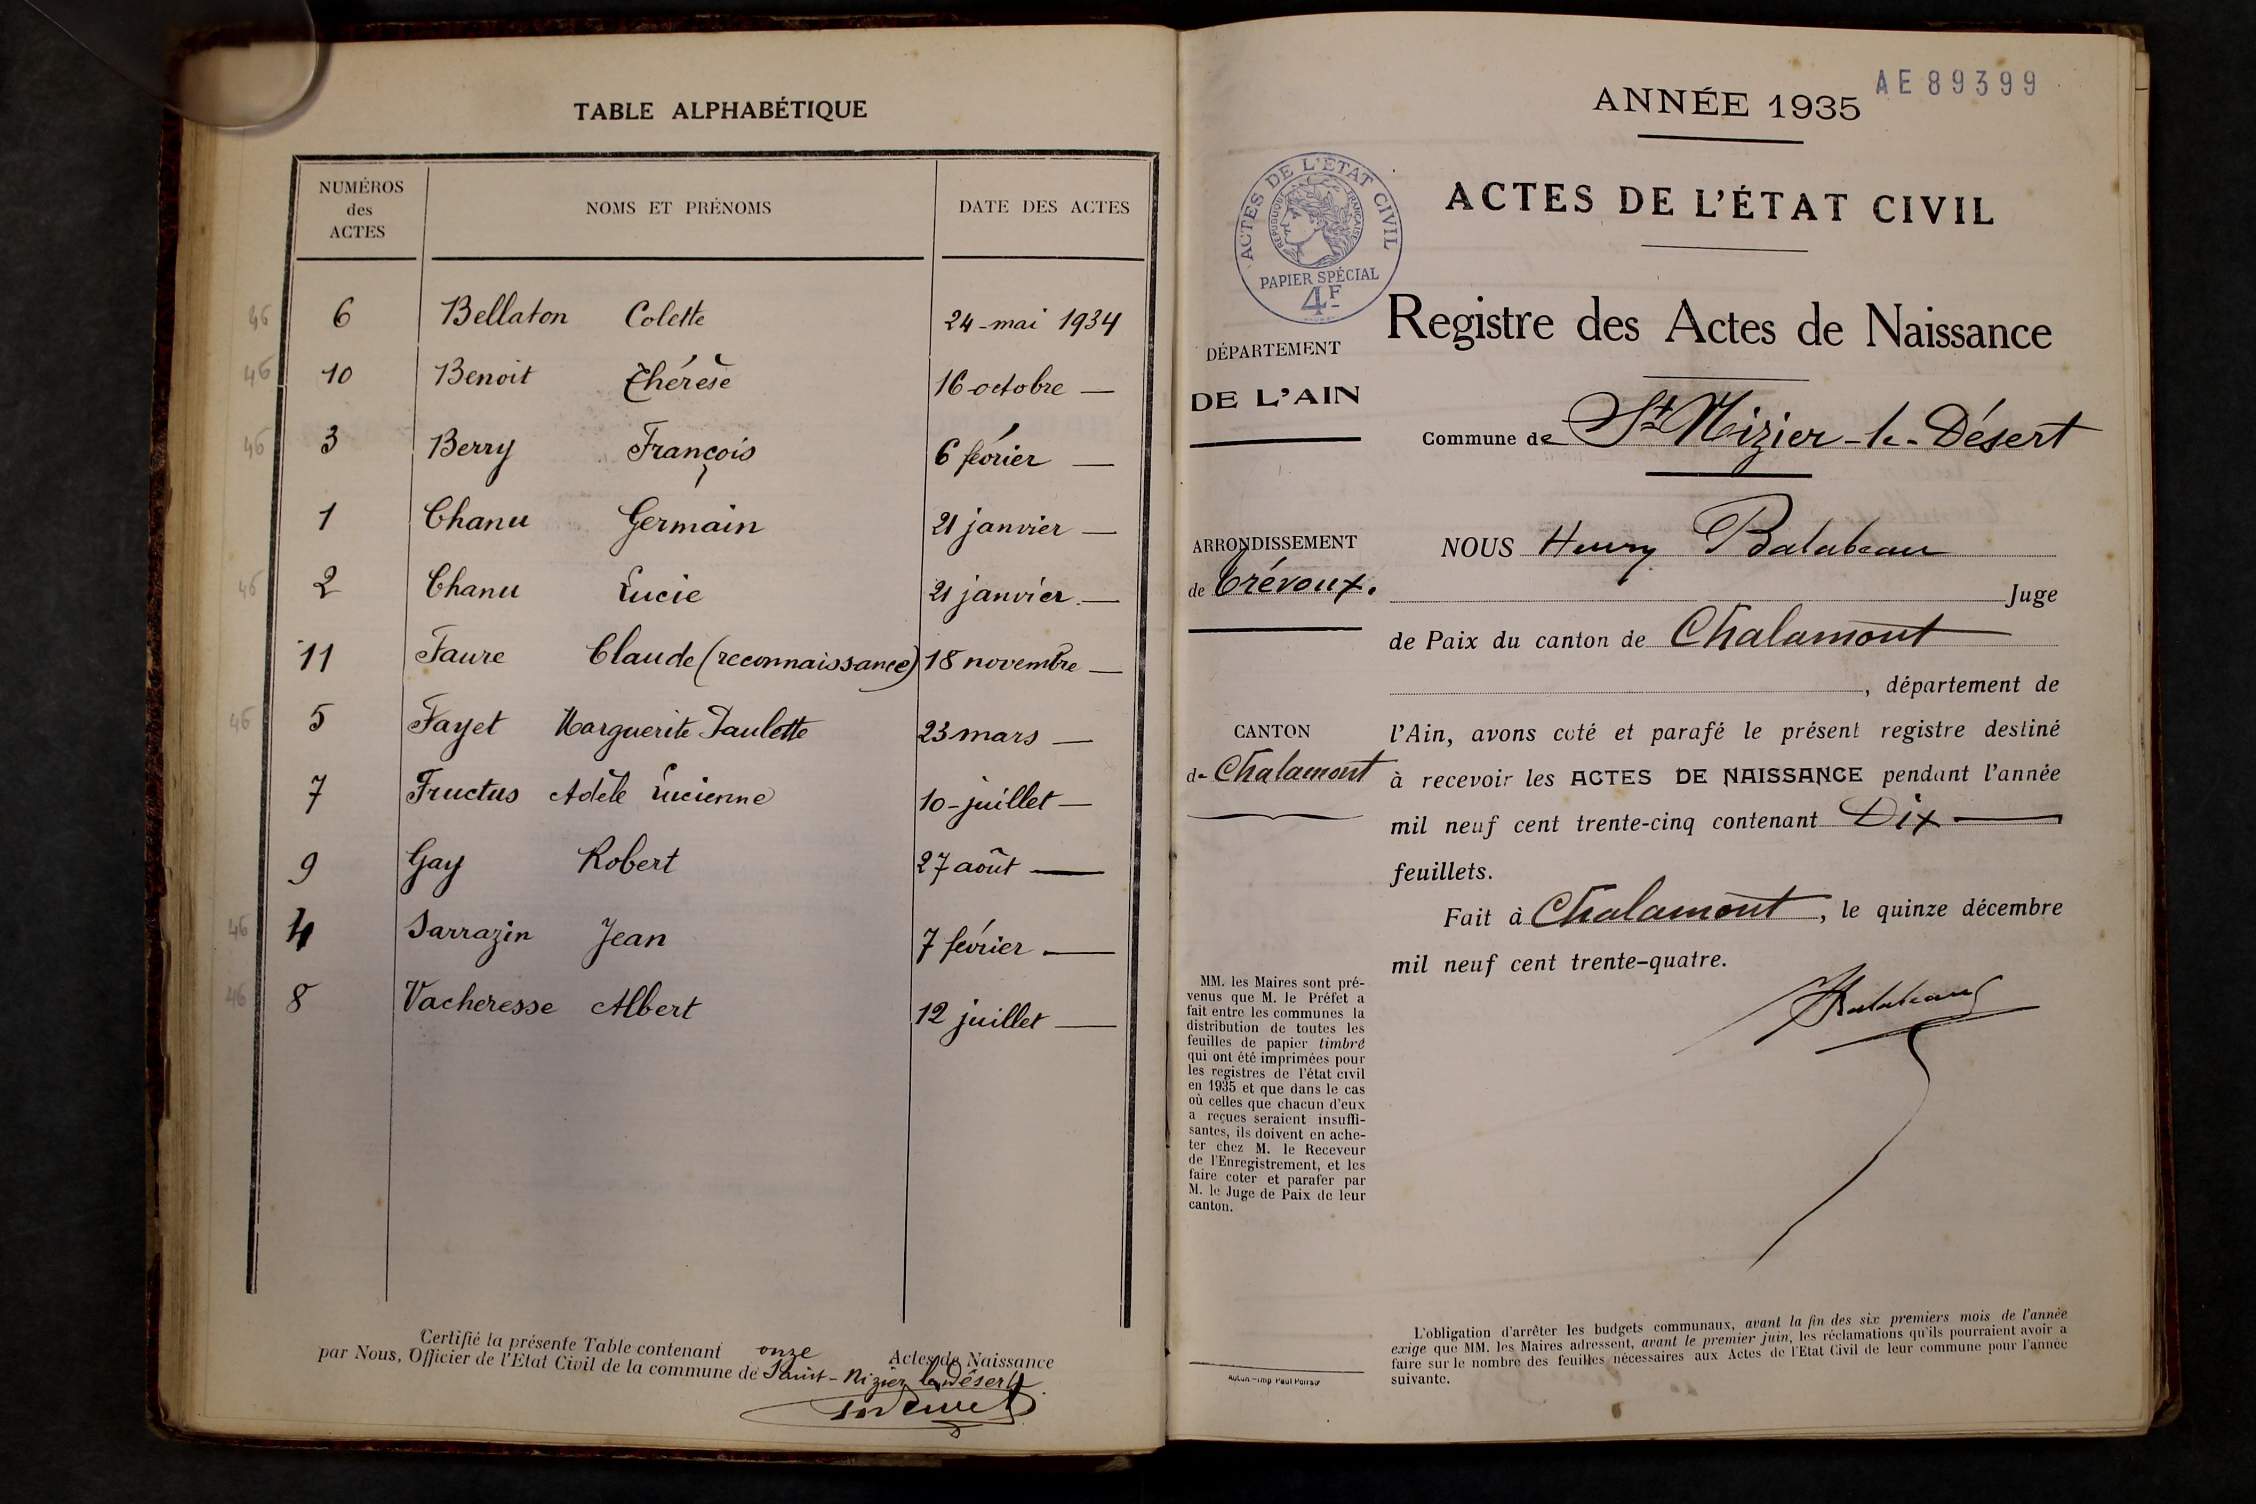 TABLE ALPHABÉTIQUE
NUMÉROS
des
ACTES
NOMS ET PRÉNOMS
DATE DES ACTES
46 6 Bellaton Colette 24 - mai 1934
46 10 Benoit Thérèse 16 octobre —
46 3 Berry François 6 février —
1 Chanu Germain 21 janvier —
46 2 Chanu Lucie 21 janvier —
11 Faure Claude (reconnaissance) 18 novembre —
46 5 Fayet Marguerite Paulette 23 mars —
7 Fructus Adèle Lucienne 10 - juillet —
9 Gay Robert 27 août —
46 4 Sarrazin Jean 7 février —
46 8 Vacheresse Albert 12 juillet —
Certifié la présente Table contenant onze Actes de Naissance
par Nous, Officier de l'Etat Civil de la commune de Saint-Nizier le Désert
ANNÉE 1935
AE89399
ACTES DE L'ÉTAT CIVIL
ACTES DE L'ÉTAT CIVIL
RÉPUBLIQUE FRANÇAISE
PAPIER SPÉCIAL
4F
Registre des Actes de Naissance
DÉPARTEMENT
DE L'AIN
Commune de St Nizier-le-Désert
ARRONDISSEMENT
de Trévoux.
CANTON
de Chalamont
NOUS Henry Balabeau
Juge
de Paix du canton de Chalamont
, département de
l'Ain, avons coté et parafé le présent registre destiné
à recevoir les ACTES DE NAISSANCE pendant l'année
mil neuf cent trente-cinq contenant Dix —
feuillets.
Fait à Chalamont, le quinze décembre
mil neuf cent trente-quatre.
HBalabeau
MM. les Maires sont pré-
venus que M. le Préfet a
fait entre les communes la
distribution de toutes les
feuilles de papier timbré
qui ont été imprimées pour
les registres de l'état civil
en 1935 et que dans le cas
où celles que chacun d'eux
a reçues seraient insuffi-
santes, ils doivent en ache-
ter chez M. le Receveur
de l'Enregistrement, et les
faire coter et parafer par
M. le Juge de Paix de leur
canton.
L'obligation d'arrêter les budgets communaux, avant la fin des six premiers mois de l'année
exige que MM. les Maires adressent, avant le premier juin, les réclamations qu'ils pourraient avoir a
faire sur le nombre des feuilles nécessaires aux Actes de l'Etat Civil de leur commune pour l'année
suivante.